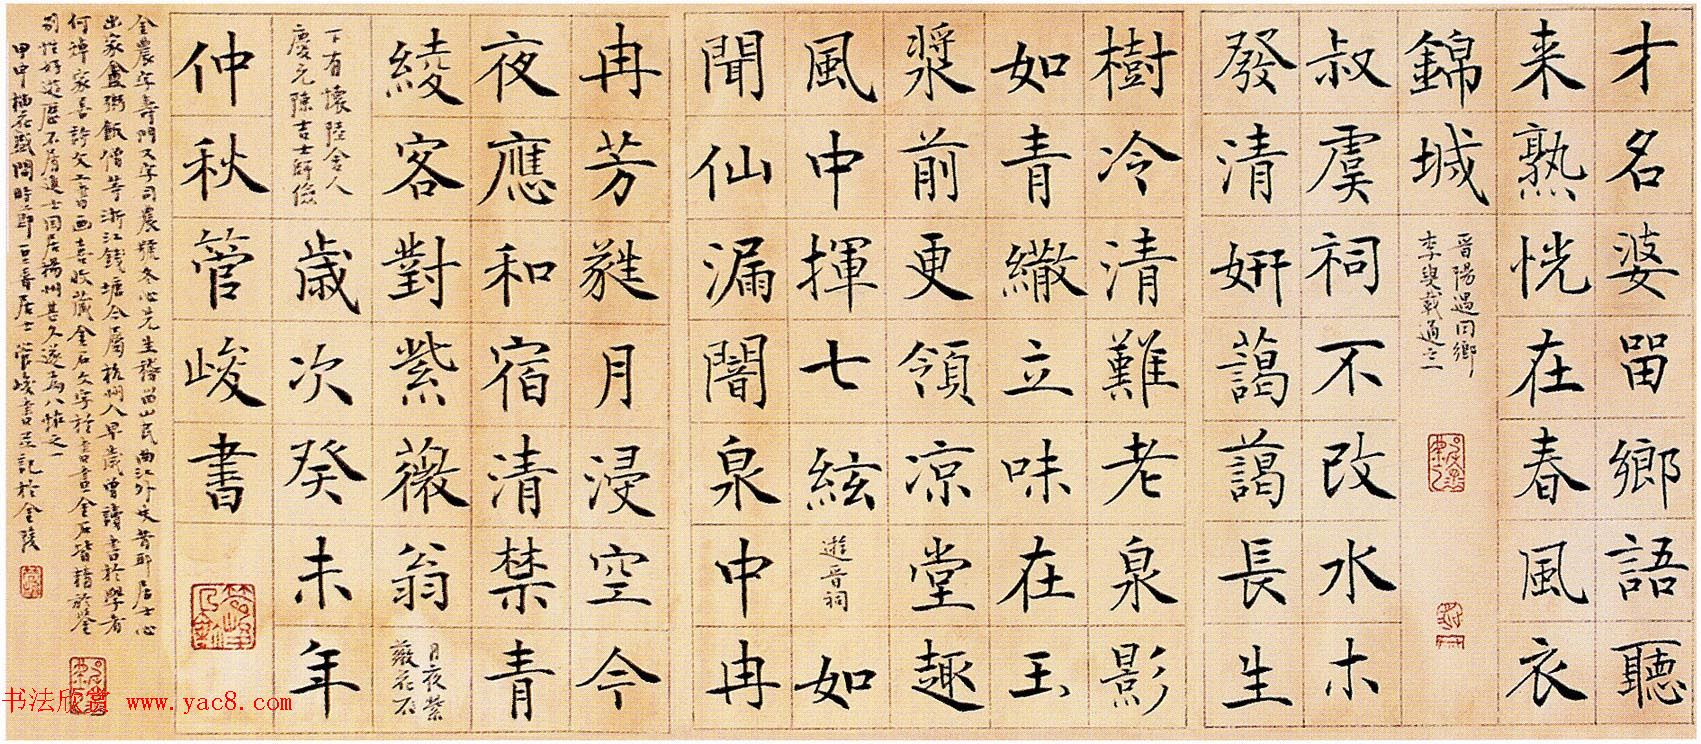 才名婆留鄉語聽
来熟恍在春風衣
錦城
晉陽遇同鄉
李叟載通之一
叔虞祠不改水木
發清妍藹藹長生
樹冷清難老泉影
如青繖立味在玉
漿前更領凉堂趣
風中揮七絃
遊晉祠
如
聞仙漏闇泉中冉
冉芳蕤月浸空今
夜應和宿清禁青
綾客對紫薇翁
月夜紫
薇花
下有懷陸舍人
慶元陳吉士師儉
歲次癸未年
仲秋管峻書
金農字壽門又字司農號冬心先生稽留山民曲江外史昔耶居士心
出家盦粥飯僧等浙江錢塘今屬杭州人早歲曾讀書於學者
何焯家善詩文工書画喜收藏金石文字於書畫金石皆精於鑒
別性好遊歷不屑進士因居揚州甚久遂為八怪之一
甲申梅花盛開時節豆香居士管峻書並記於金陵
书法欣赏 www.yac8.com